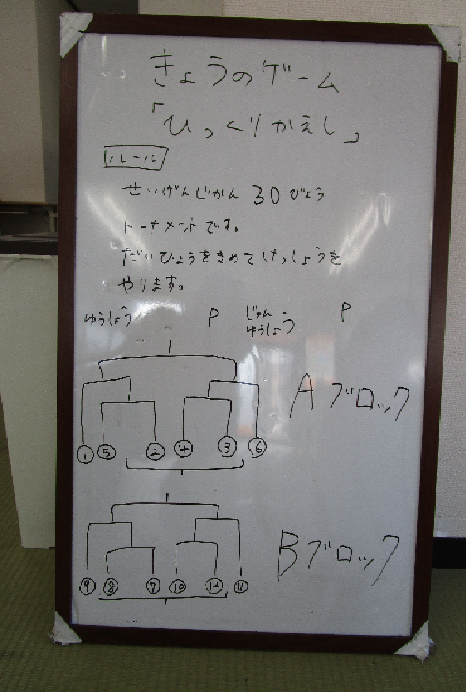 きょうのゲーム
「ひっくりかえし」
ルール
せいげんじかん 30びょう
トーナメントです。
だいひょうをきめてけっしょうを
やります。
ゆうしょう P じゅんゆうしょう P
Aブロック
① ⑤ ② ④ ③ ⑥
Bブロック
⑨ ⑧ ⑦ ⑩ ⑫ ⑪